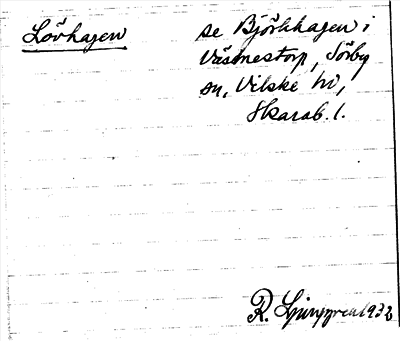 Lövhagen
se Björkhagen i
Väsmestorp, Sörby
sn, Vilske hd,
Skarab. l.
R. Ljunggren 1932